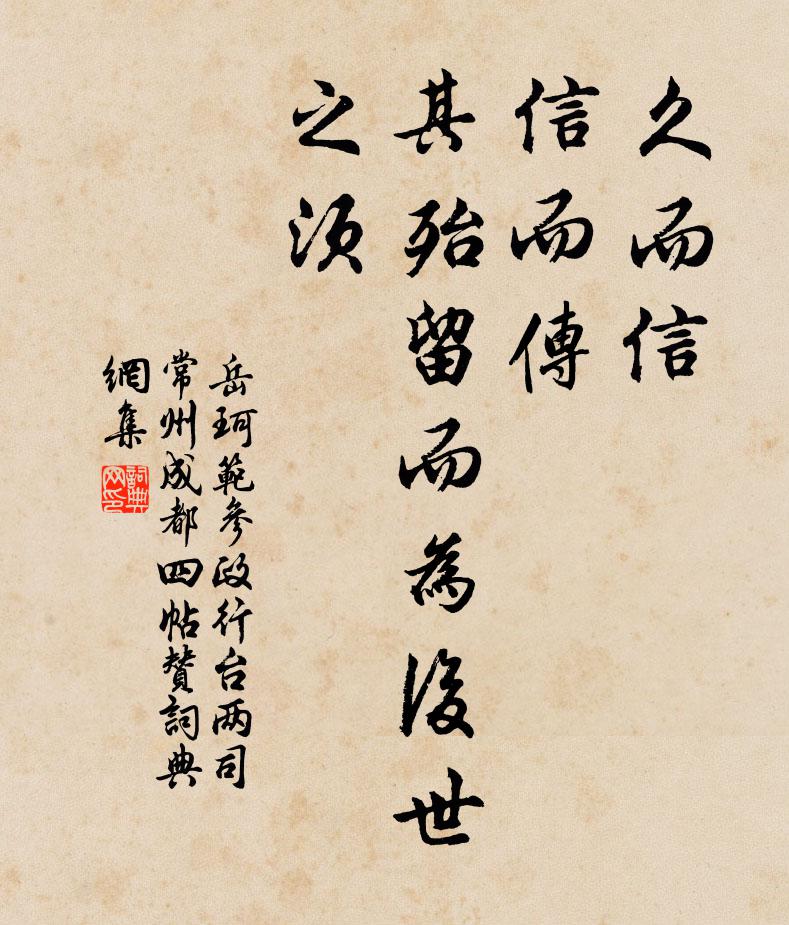 久而信
信而傳
其殆留而為後世
之須
岳珂範參政行台兩司
常州成都四帖贊詞典
網集
詞典
网印